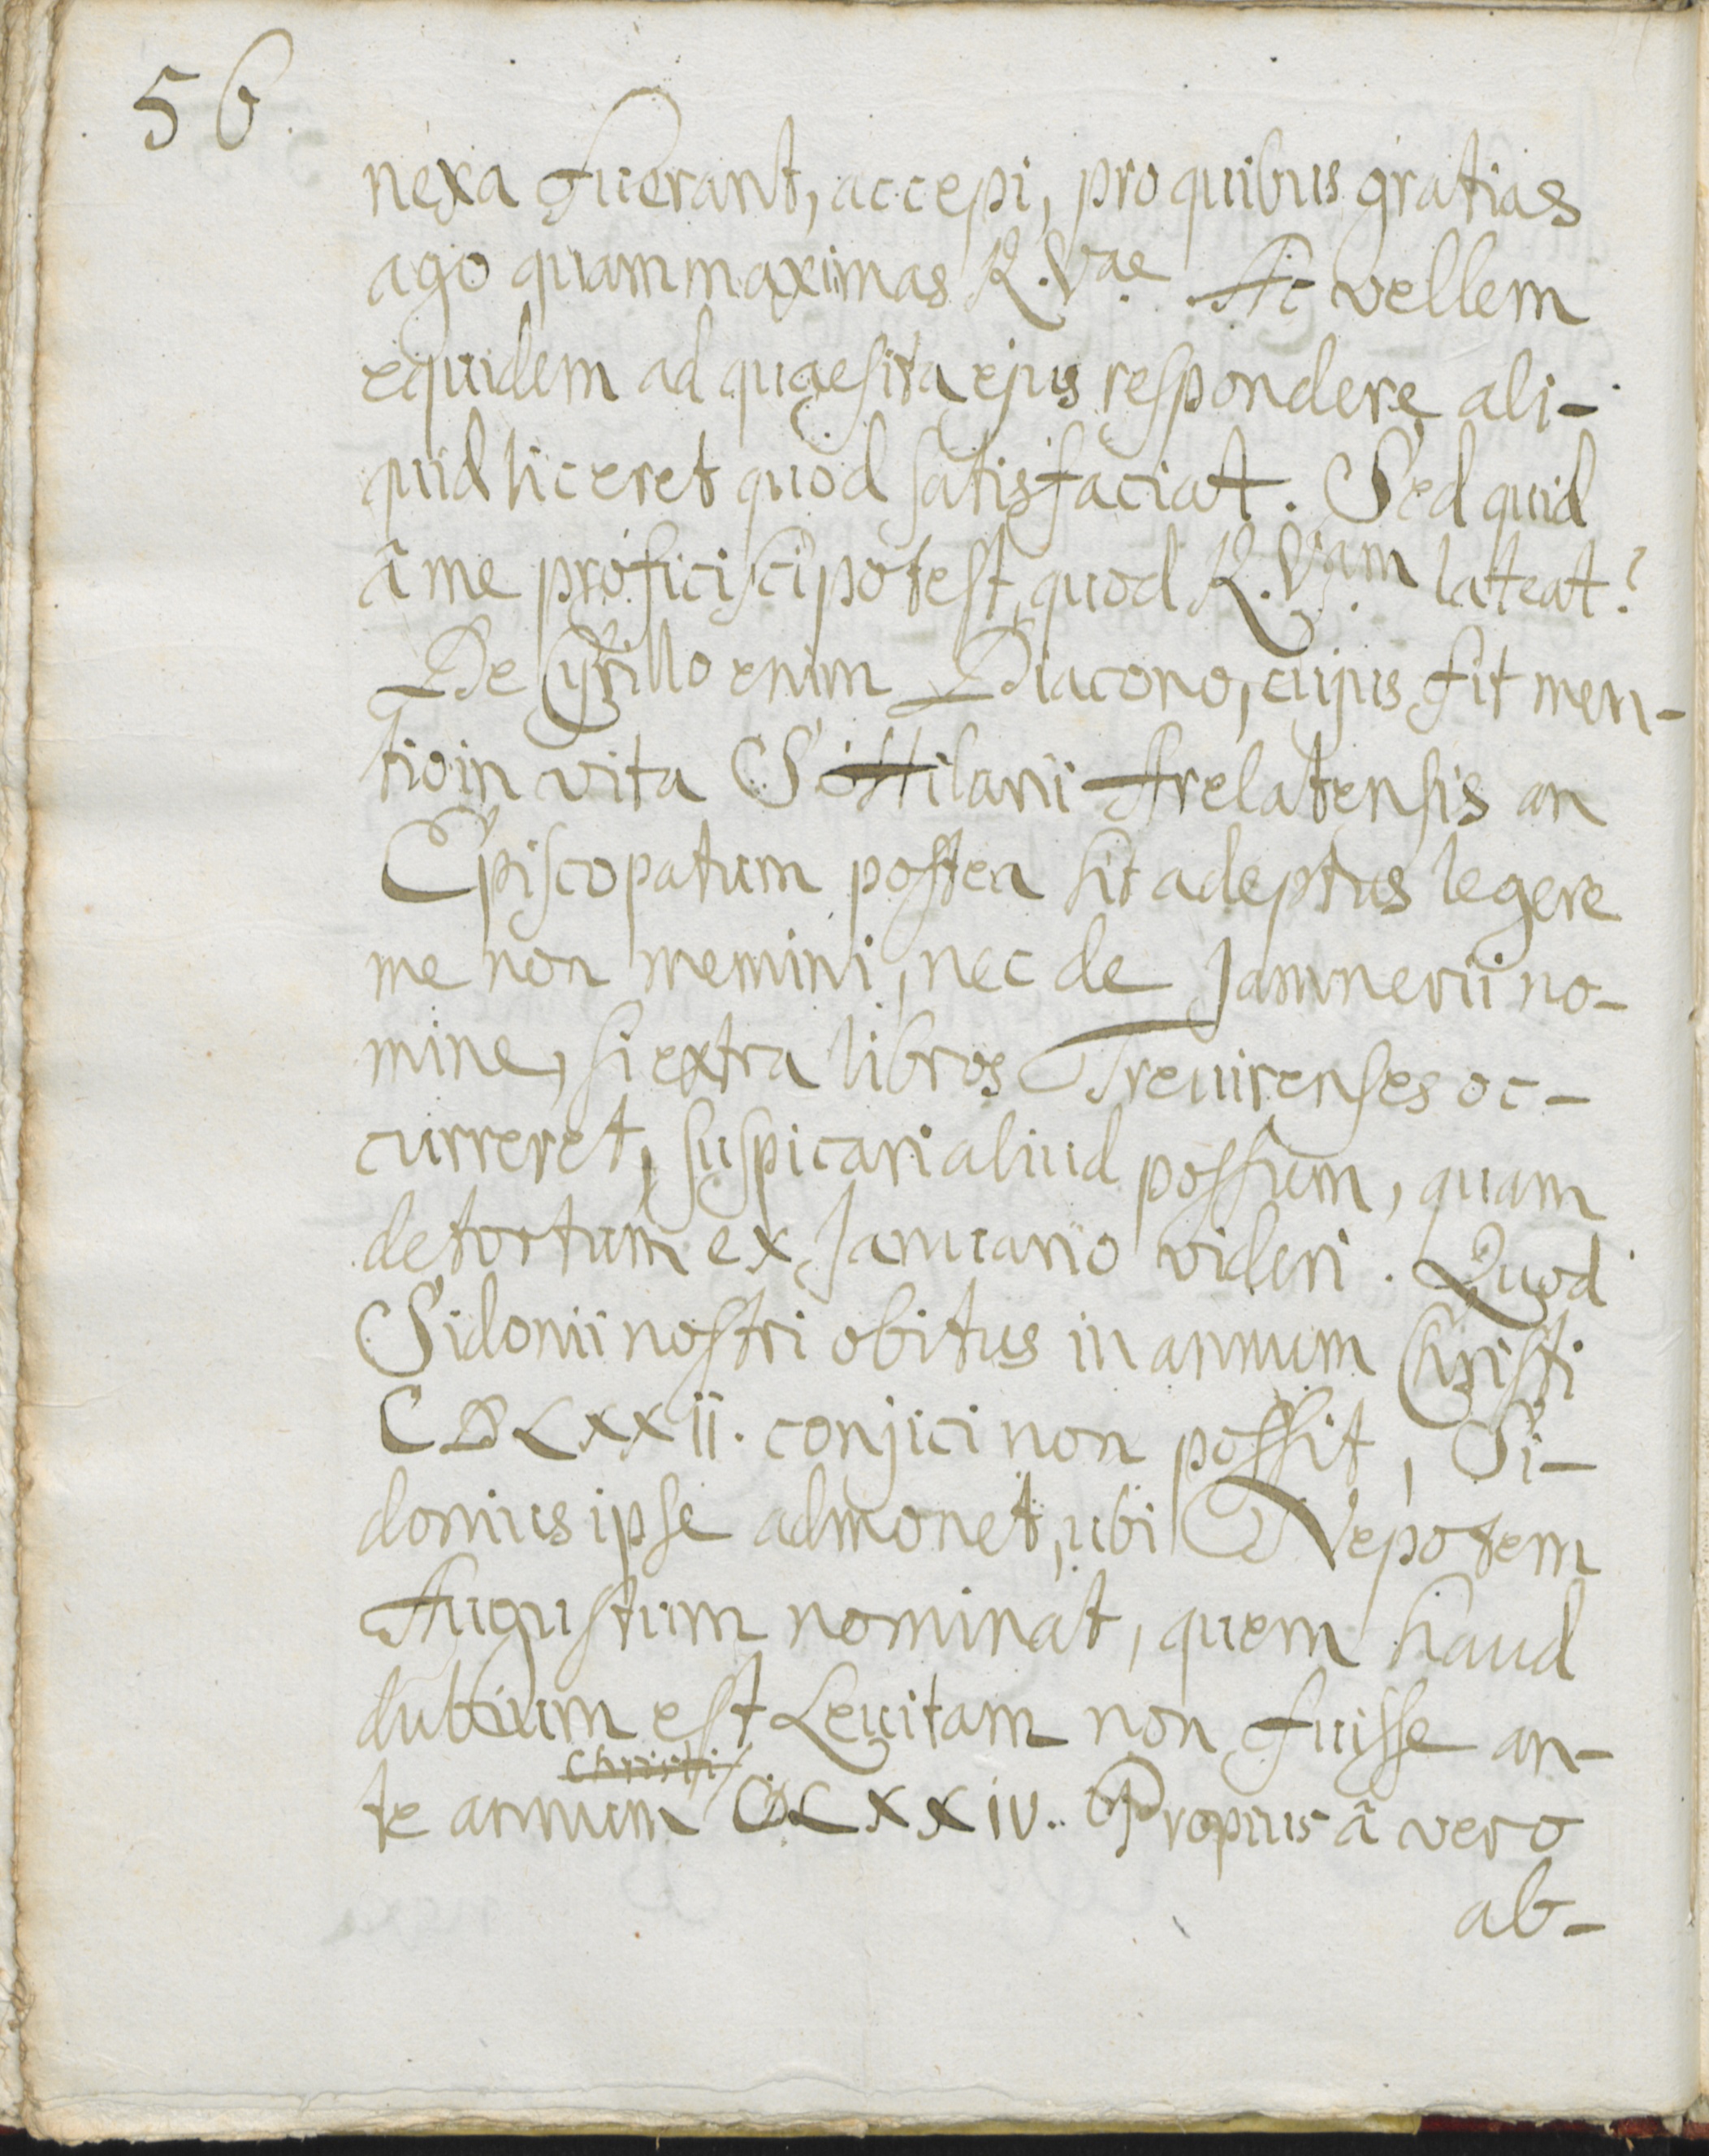 56.
nexa fuerant, accepi, pro quibus gratias
ago quam maximas R.Vae. Ac vellem
equidem ad quaesita ejus respondere ali-
quid liceret quod satisfaciat. Sed quid
â me proficisci potest, quod R.Vam. lateat?
De Cyrillo enim Diacono, cujus fit men-
tio in vita S. Hilarii Arelatensis an
Episcopatum postea sit adeptus legere
me non memini, nec de Jamnerii no-
mine, si extra libros Trevirenses oc-
curreret, suspicari aliud possum, quam
detortum ex Januario videri. Quod
Sidonii nostri obitus in annum Christi
CDLXXII. conjici non possit, Si-
donius ipse admonet, ubi Nepotem
Augustum nominat, quem haud
dubium est Levitam non fuisse an-
te annum Christi CDLXXIV. Propius â vero
ab-